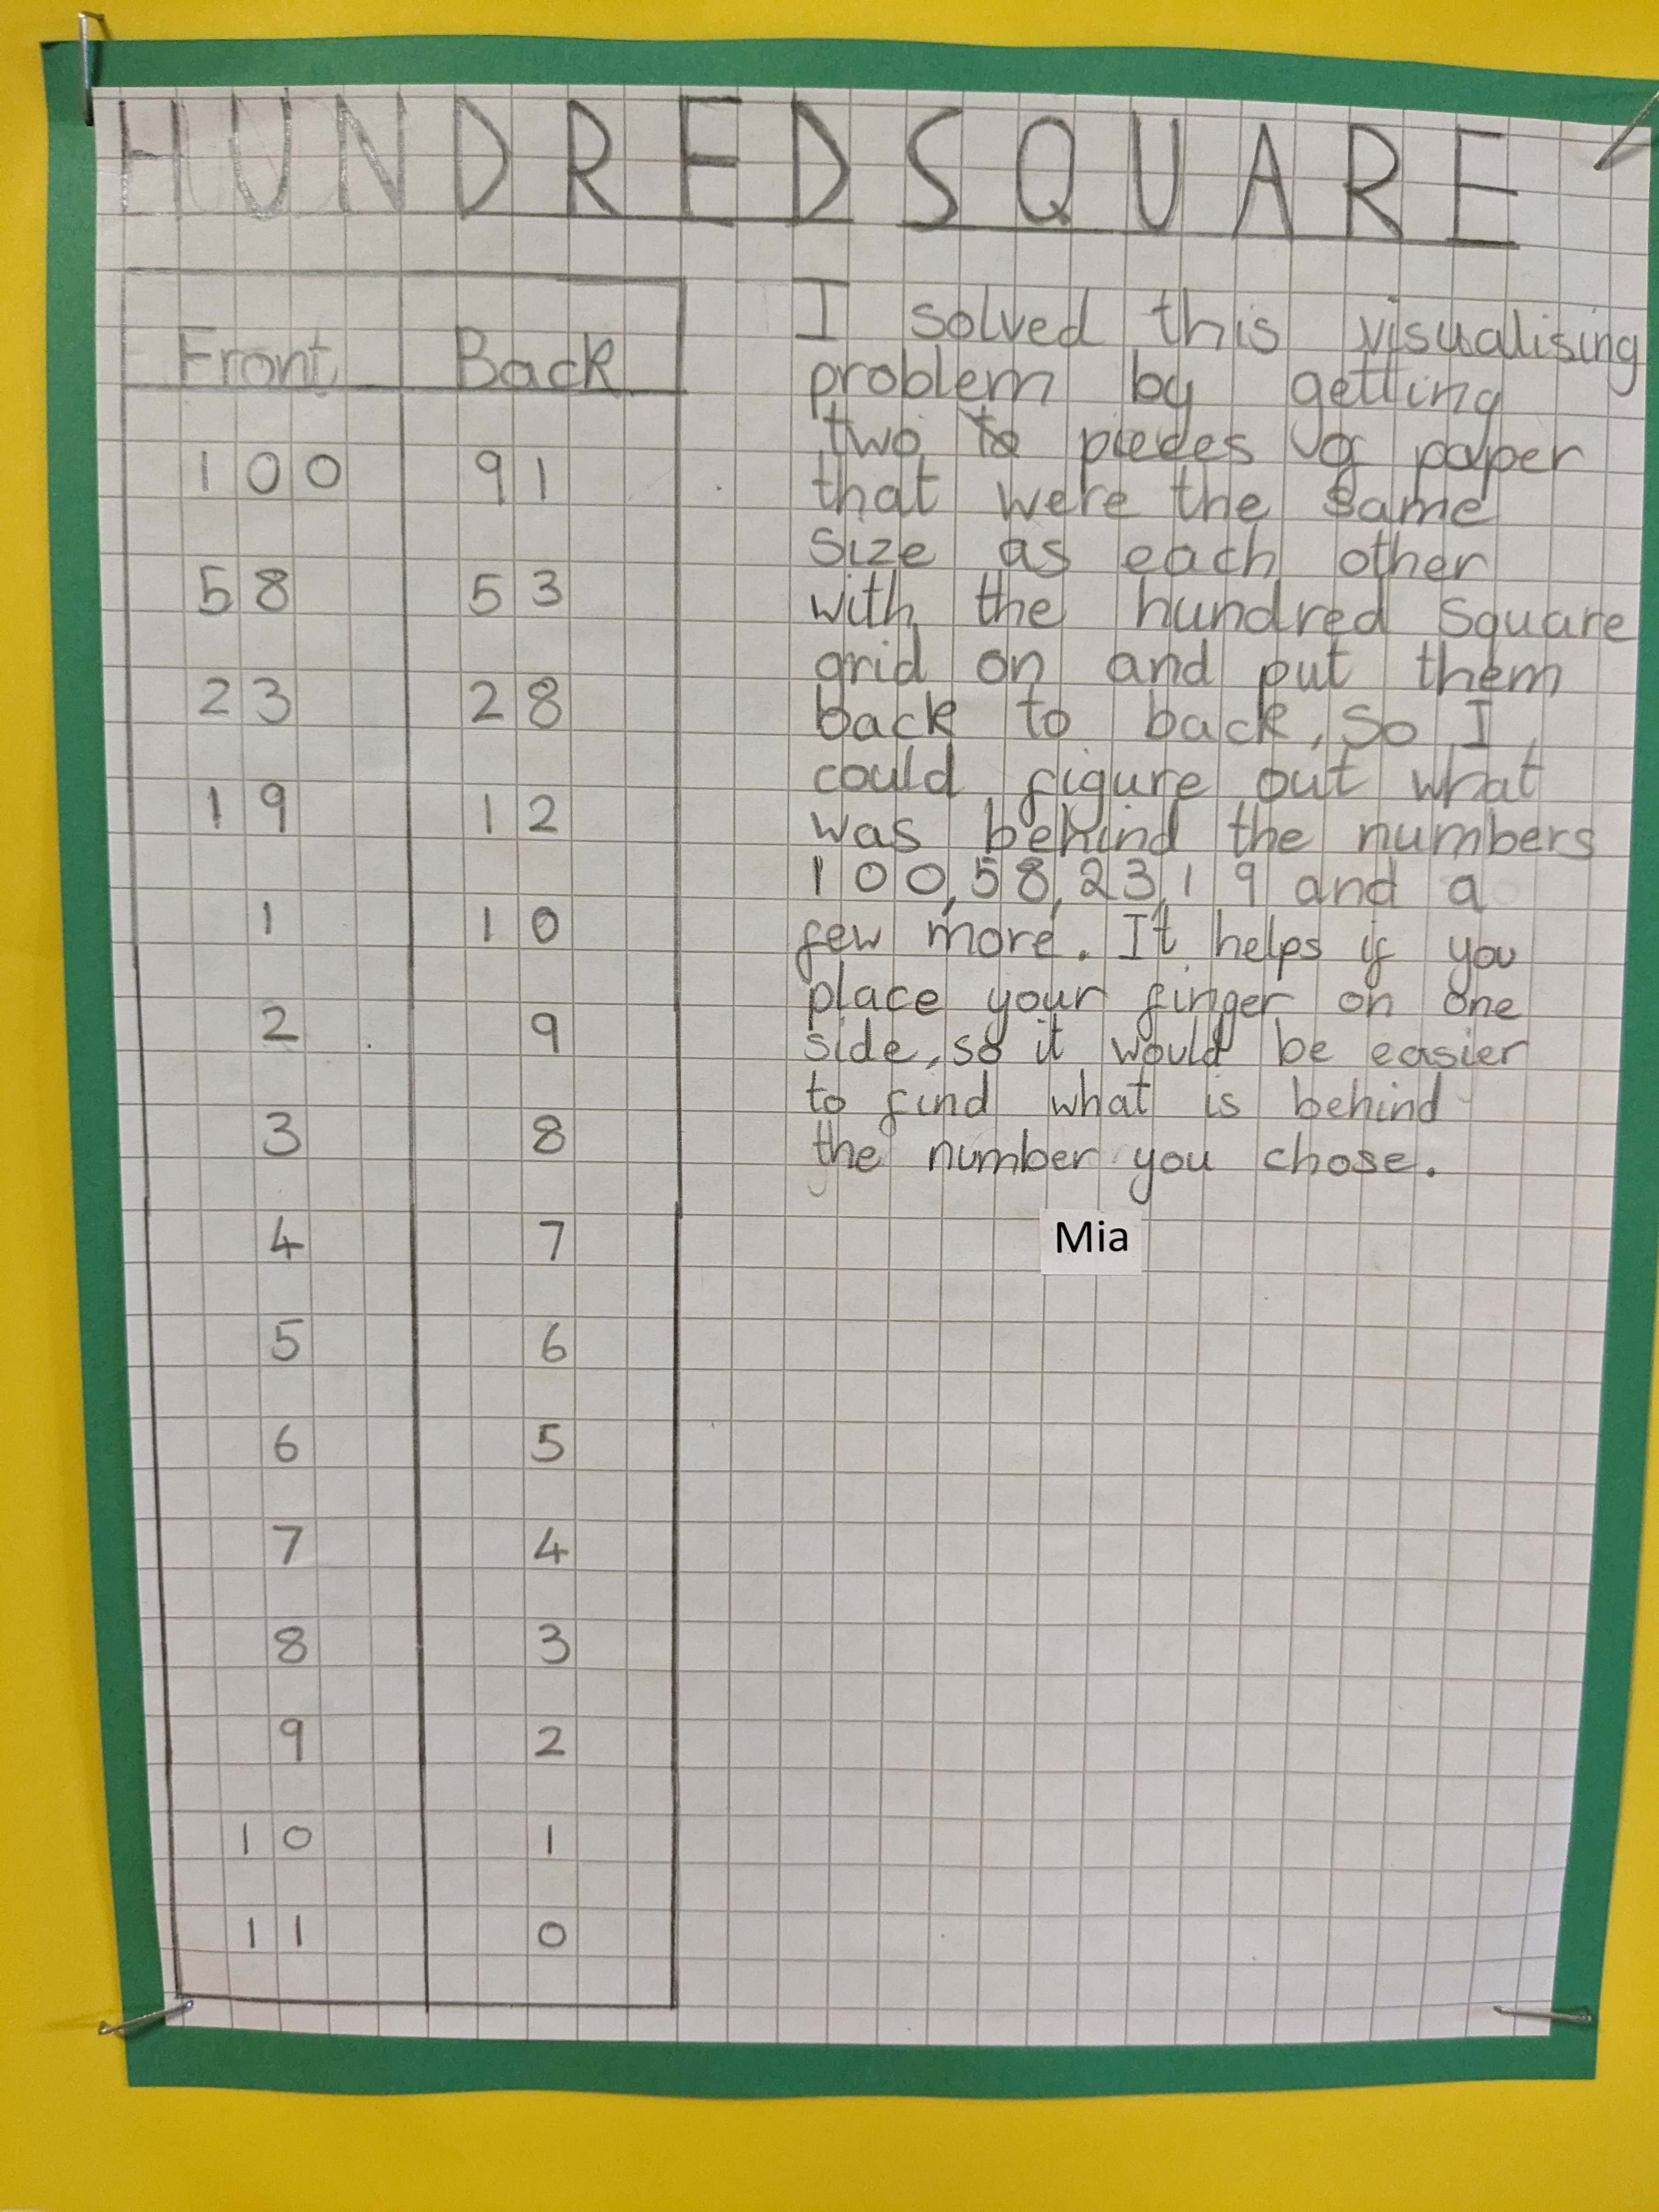 HUNDRED SQUARE
Front Back
100 91
58 53
23 28
19 12
1 10
2 9
3 8
4 7
5 6
6 5
7 4
8 3
9 2
10 1
11 0
I solved this visualising
problem by getting
two to pieces of paper
that were the same
size as each other
with the hundred square
grid on and put them
back to back, so I
could figure out what
was behind the numbers
100, 58, 23, 19 and a
few more. It helps if you
place your finger on one
side, so it would be easier
to find what is behind
the number you chose.
Mia